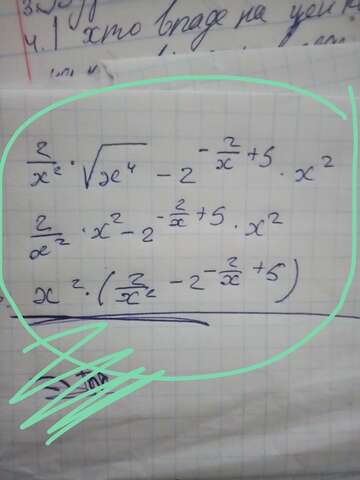 4.1 хто впаде на цей
2/x² · √x⁴ - 2^(-2/x + 5) · x²
2/x² · x² - 2^(-2/x + 5) · x²
x² · (2/x² - 2^(-2/x + 5))